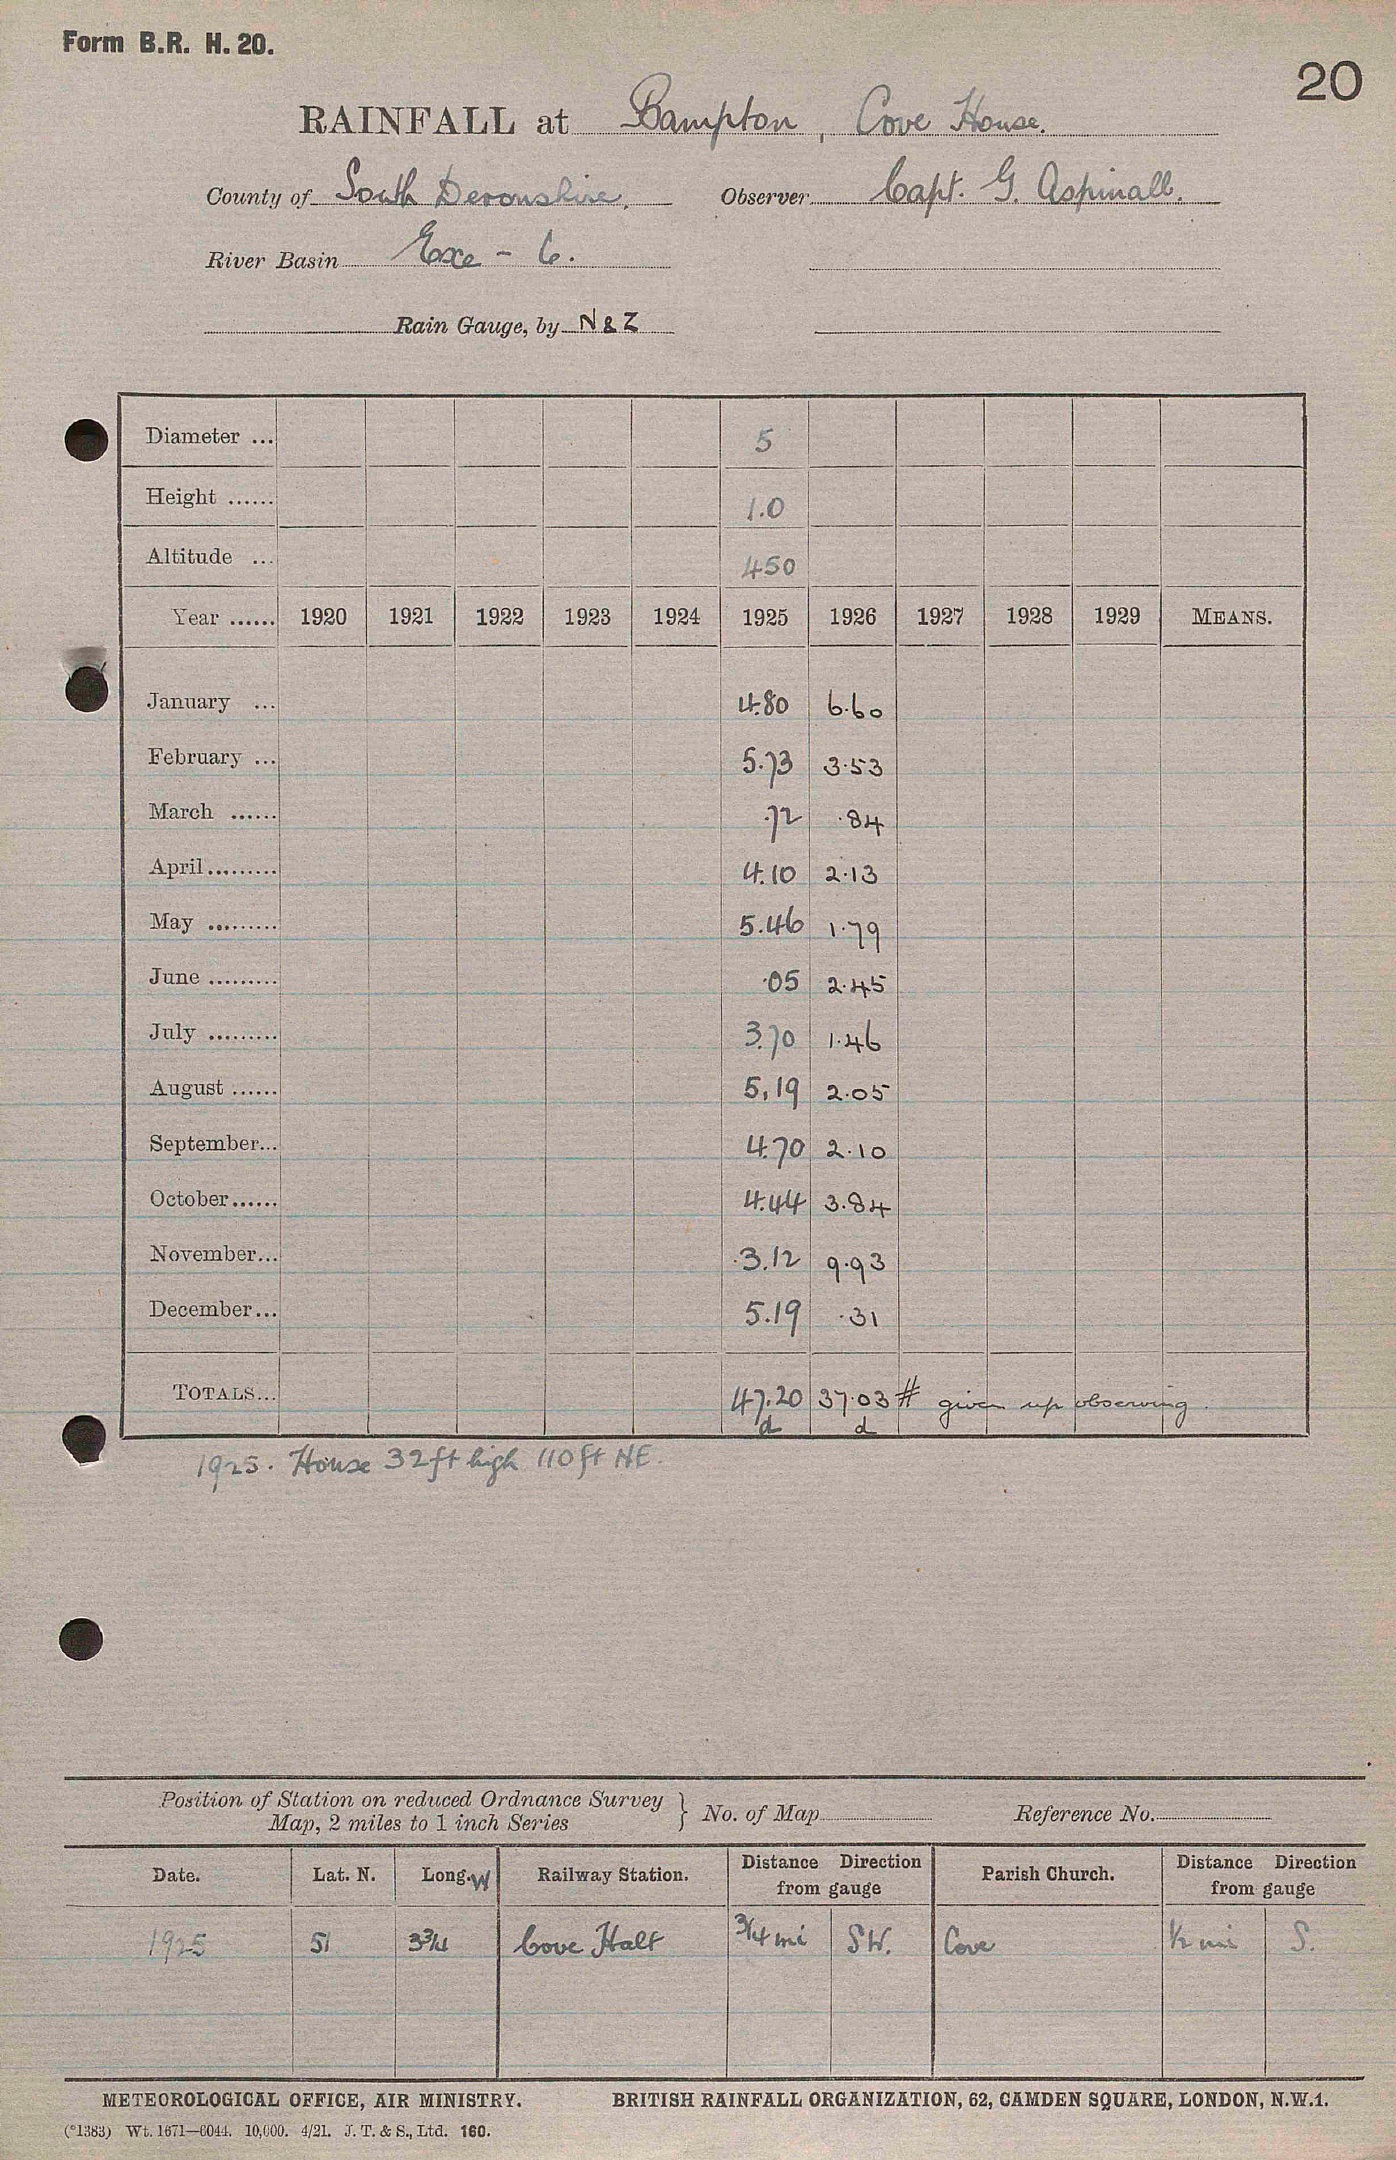 Form B.R. H. 20.
20
RAINFALL at Bampton, Cove House.
County of South Devonshire. Observer Capt. G. Aspinall.
River Basin Exe - 6.
Rain Gauge, by N & Z
Diameter ... 5
Height ...... 1.0
Altitude ... 450
Year ...... 1920 1921 1922 1923 1924 1925 1926 1927 1928 1929 MEANS.
January ... 4.80 6.60
February ... 5.73 3.53
March ...... .72 .84
April ......... 4.10 2.13
May ......... 5.46 1.79
June ......... .05 2.45
July ......... 3.70 1.46
August ...... 5.19 2.05
September ... 4.70 2.10
October ...... 4.44 3.84
November ... 3.12 9.93
December ... 5.19 .31
TOTALS ... 47.20 37.03 # given up observing
d d
1925. House 32ft high 110ft NE.
Position of Station on reduced Ordnance Survey
Map, 2 miles to 1 inch Series } No. of Map Reference No.
Date. Lat. N. Long. W Railway Station. Distance Direction from gauge Parish Church. Distance Direction from gauge
1925 51 3 3/4 Cove Halt 3/4 mi SW. Cove 1/2 mi S.
METEOROLOGICAL OFFICE, AIR MINISTRY. BRITISH RAINFALL ORGANIZATION, 62, CAMDEN SQUARE, LONDON, N.W.1.
(*1383) Wt. 1671—6044. 10,000. 4/21. J. T. & S., Ltd. 160.